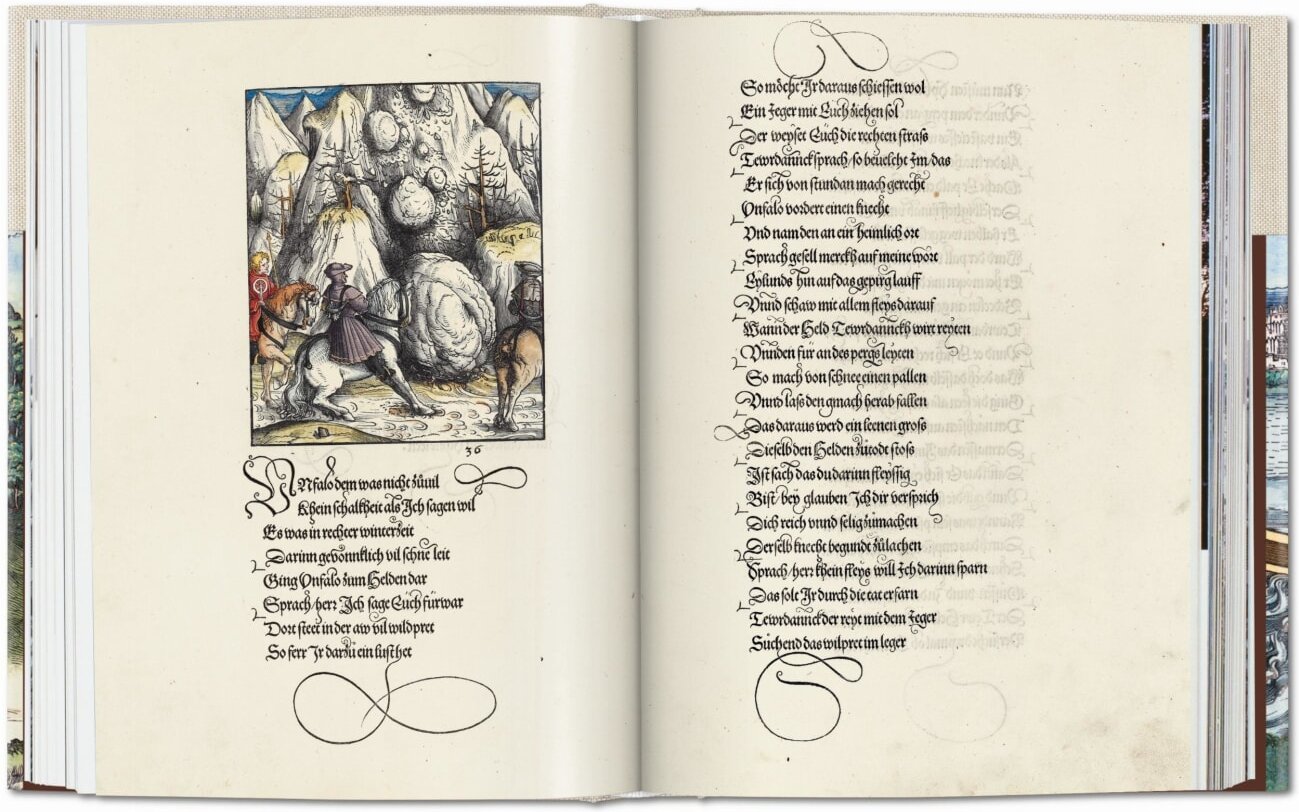 36
Vnfalo dem was nicht zuuil
Khein schalkheit als Ich sagen wil
Es was in rechter winterzeit
Darinn gewonnklich vil schne leit
Ging Vnfalo zum Helden dar
Sprach herr Ich sage Euch fürwar
Dort steet in der aw vil wildpret
So ferr Ir darzu ein lust het
So möcht Ir daraus schiessen wol
Ein Jeger mit Euch ziehen sol
Der weyset Euch die rechten strass
Tewrdannck sprach / so beuelcht Im / das
Er sich von stundan mach gerecht
Vnfalo vordert einen knecht
Vnd nam den an ein heimlich ort
Sprach gesell merckh auf meine wort
Eylunds hin auf das gepirg lauff
Vnnd schaw mit allem fleys darauf
Wann der Held Tewrdannckh wirt reyten
Vnnden für an des pergs leyten
So mach von schnee einen pallen
Vnnd lass den gmach herab fallen
Das daraus werd ein leenen gross
Dieselb den Helden zutodt stoss
Ist sach das du darinn fleyssig
Bist / bey glauben Ich dir versprich
Dich reich vnnd selig zumachen
Derselb knecht begundt zulachen
Sprach / herr khein fleys will Ich darinn sparn
Das solt Ir durch die tat erfarn
Tewrdannck der reyt mit dem Jeger
Suchend das wilpret im leger